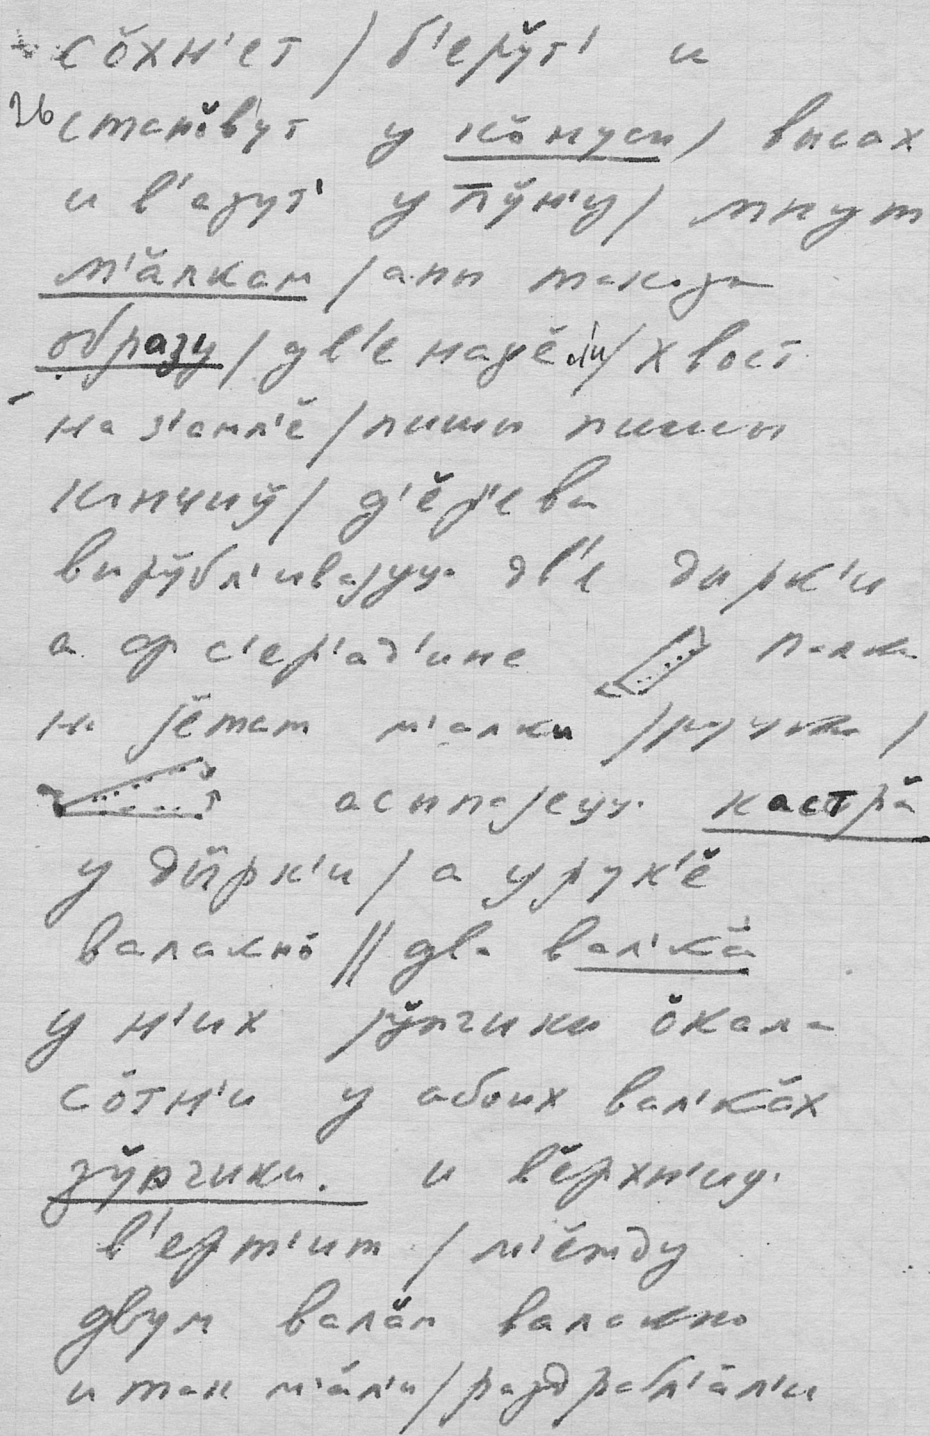 со́хн'ет / б'еру́т' и
26 стано́в'ут у ко́нуси / висах
и в'азут' у пу́н'у / мнут
м'а́лкам /
образу / дв'е наде́ли / хвост
на з'амл'е́ / пиши пиши
д'е́р'ева
виру́бл'ивајуц' дв'е дирк'и
а ф с'ер'ад'ине палка
на је́там м'алки / ручка /
асипајецц' кастра́
у ды́рк'и / а у рук'е́
валакно́ // два вал'ка́
у н'их зу́пчики о́кала
со́тн'и у абоих вал'ка́х
зу́пчики. и ве́рхн'иј
в'ерт'ит / м'е́жду
двум вала́м валакно
и так м'а́л'и / раздрабл'а́л'и